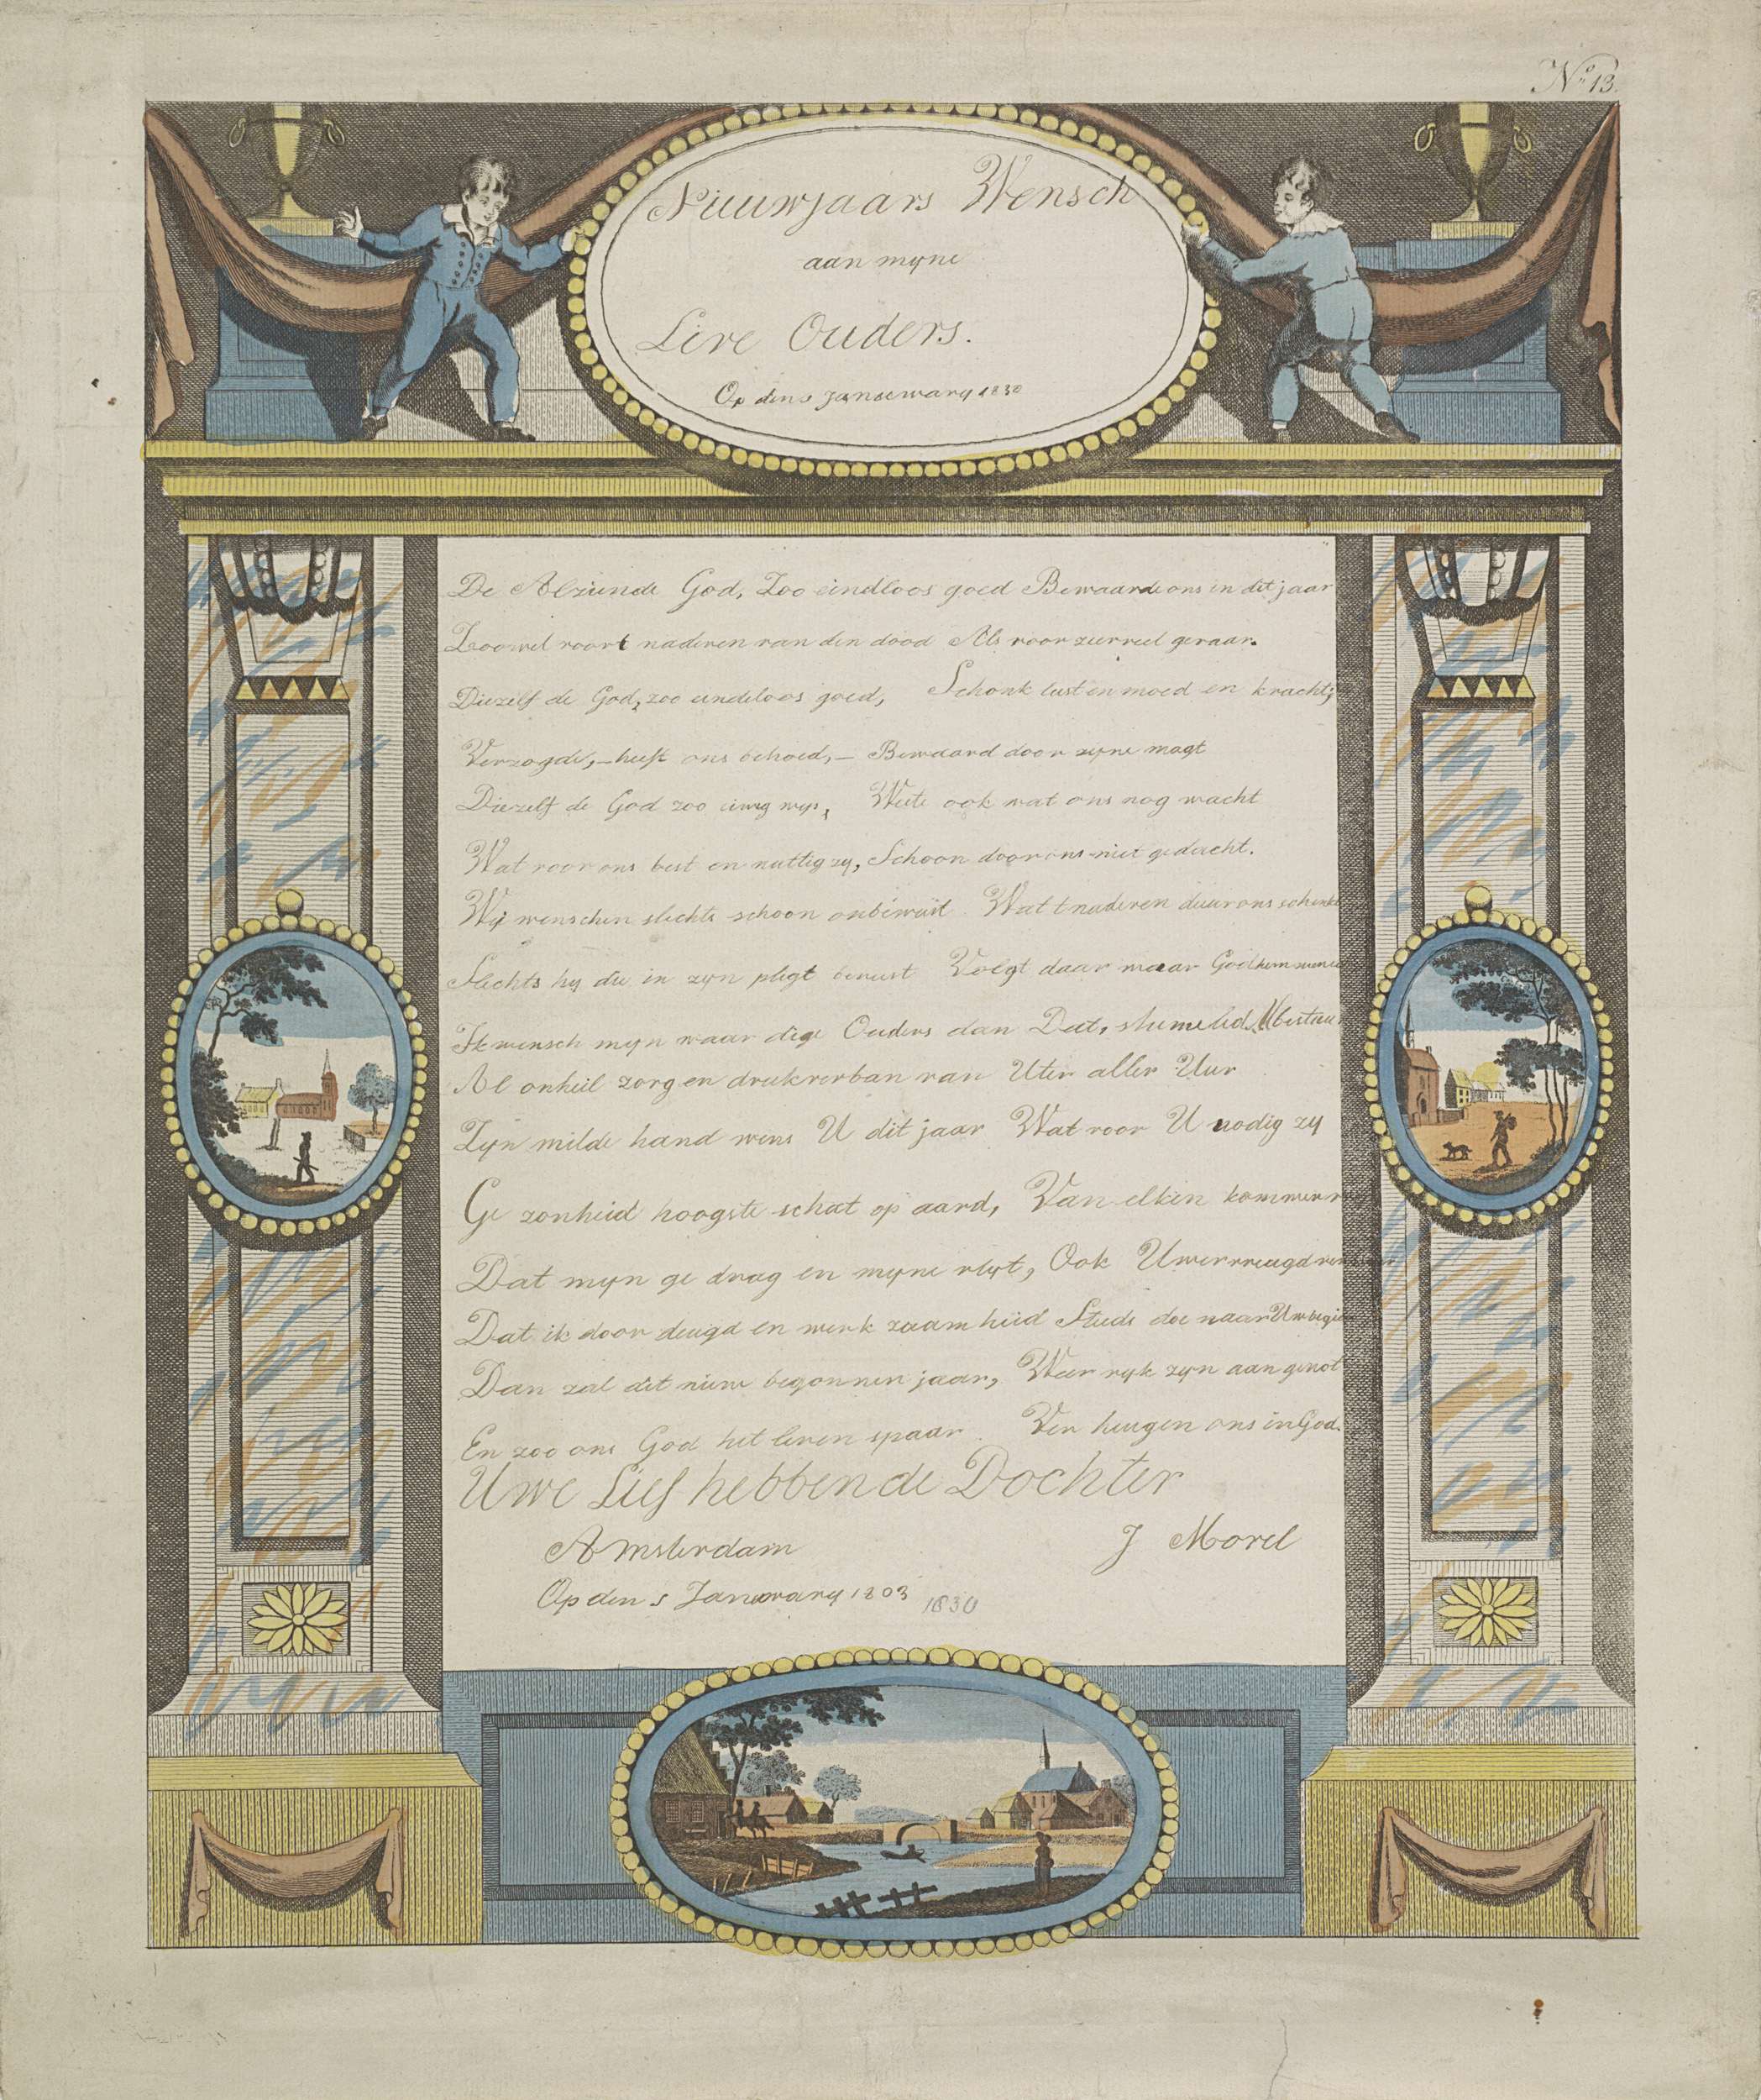 No 13.
Nieuwjaars Wensch
aan myne
Live Ouders.
Op den 1 Januwary 1830
De Alziende God, Zoo eindloos goed Bewaarde ons in dit jaar
Zoowel voor t naderen van den dood Als voor zeer veel gevaar.
Diezelf de God, zoo eindeloos goed, Schonk lust en moed en kracht;
Verzogde, – heeft ons behoed, – Bewaard door zyne magt
Diezelf de God zoo eiwig wys, Weite ook wat ons nog wacht
Wat voor ons best en nuttig zy, Schoon door ons niet gedacht.
Wij wenschen slechts schoon onbewuit Wat t naderen duur ons schenk
Slechts hy die in zyn pligt berust Volgt daar maar God hem
Ik wensch myn waar dige Ouders dan Dat, stume lid U bestuu
Al onheil zorg en druk verban van Uter aller Uur
Zyn milde hand wens U dit jaar Wat voor U nodig zy
Ge zonheid hoogste schat op aard, Van elken kommer
Dat myn ge drag en myne vlyt, Ook Uwer vreugd
Dat ik door deugd en werk zaam heid Steeds doe naar Uw
Dan zal dit nieuw begonnen jaar, Weer ryk zyn aan genot
En zoo ons God het leven spaar Ver heugen ons in God.
Uwe Lief hebben de Dochter
Amsterdam J Morel
Op den 1 Januwary 1803 1830